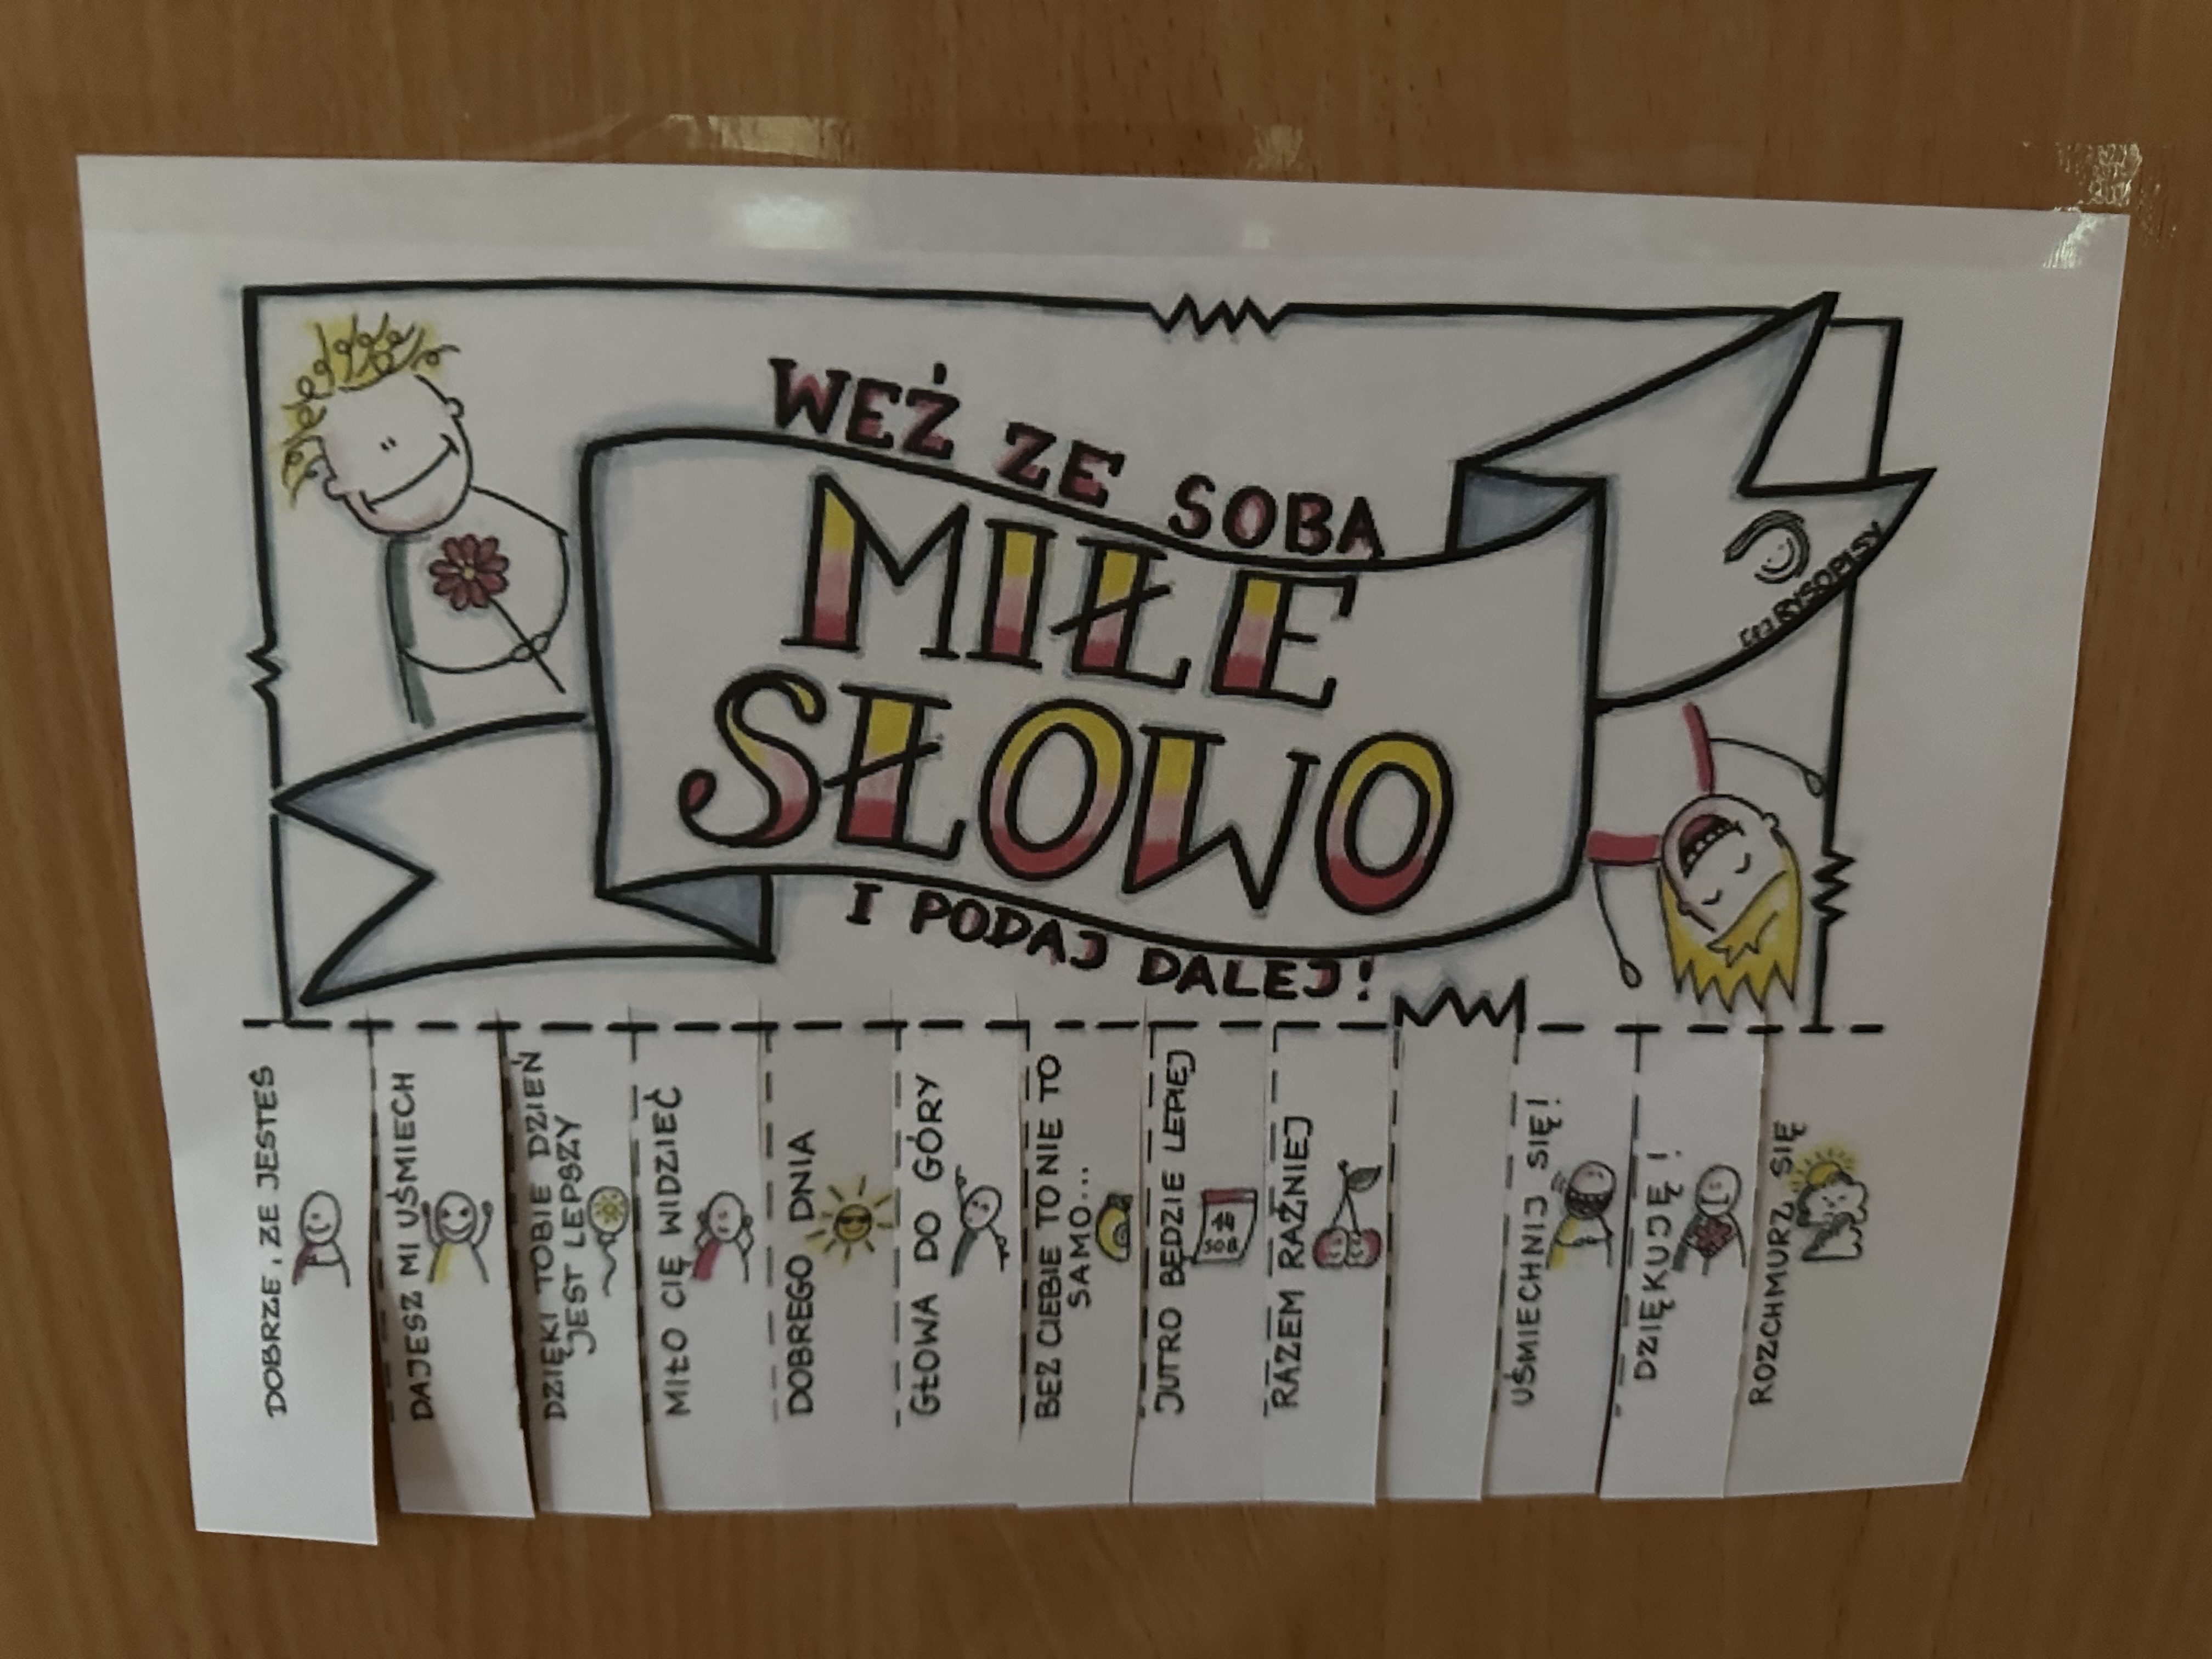 WEŹ ZE SOBĄ
MIŁE
SŁOWO
I PODAJ DALEJ!
RYSOPISY
DOBRZE, ŻE JESTEŚ
DAJESZ MI UŚMIECH
DZIĘKI TOBIE DZIEŃ
JEST LEPSZY
MIŁO CIĘ WIDZIEĆ
DOBREGO DNIA
GŁOWA DO GÓRY
BEZ CIEBIE TO NIE TO
SAMO...
JUTRO BĘDZIE LEPIEJ
SOB
RAZEM RAŹNIEJ
UŚMIECHNIJ SIĘ!
DZIĘKUJĘ!
ROZCHMURZ SIĘ